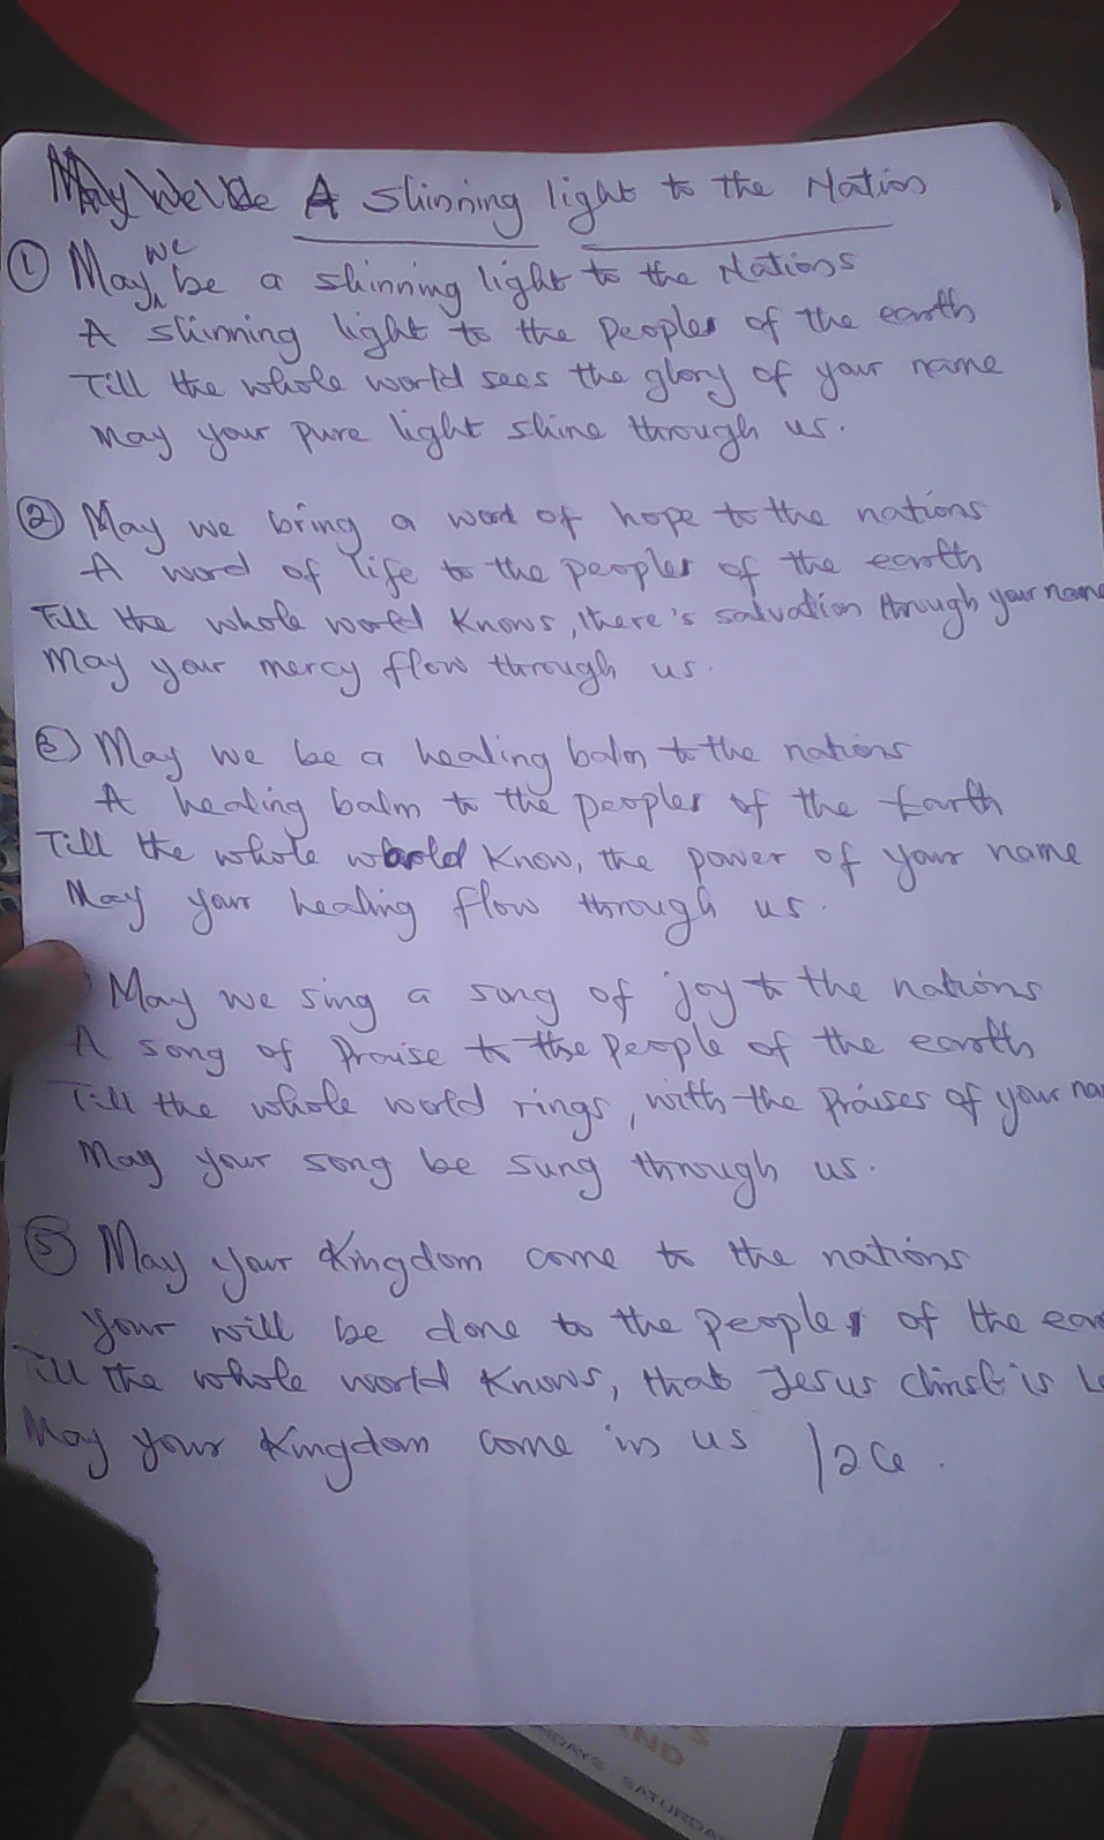 May We Be A shinning light to the Nation
① May we be a shinning light to the Nations
A shinning light to the Peoples of the earth
Till the whole world sees the glory of your name
May your pure light shine through us.
② May we bring a word of hope to the nations
A word of life to the peoples of the earth
Till the whole world knows, there's salvation through your name
May your mercy flow through us.
③ May we be a healing balm to the nations
A healing balm to the peoples of the Earth
Till the whole world know, the power of your name
May your healing flow through us.
May we sing a song of joy to the nations
A song of Praise to the People of the earth
Till the whole world rings, with the Praises of your na
May your song be sung through us.
⑤ May your Kingdom come to the nations
Your will be done to the peoples of the ear
Till the whole world knows, that Jesus Christ is L
May your Kingdom come in us
ND
DAYS - SATURDA